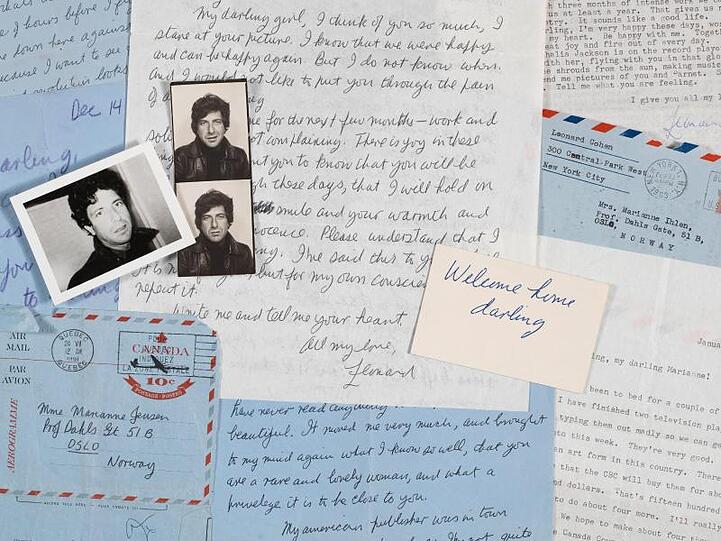 hours before I
down here against
because I want to see
looks
Dec 14
arling,
you
to
My darling girl, I think of you so much, I
stare at your picture. I know that we were happy
and can be happy again. But I do not know when.
And I would not like to put you through the pain
of
me for the next few months – work and
not complaining. There is joy in these
want you to know that you will be
these days, that I will hold on
smile and your warmth and
Please understand that I
I've said this to
but for my own
repeat it.
Write me and tell me your heart.
All my love,
Leonard
three months of intense work
at least a year. That gives us
ntry. It sounds like a good life.
I'm very happy these days,
my heart. Be happy with me.
great joy and fire out of every
halia Jackson is on the record player
with her, flying with you in that
shrouds from the sun, making
me pictures of you and Barnet.
Tell me what you are feeling.
I give you all my
Leonard
Leonard Cohen
300 Central Park West
New York City
Mrs. Marianne Ihlen,
Prof. Dahls Gate, 51 B,
OSLO,
NORWAY
Welcome home
darling
AIR
MAIL
PAR
AVION
AEROGRAMME
QUEBEC
QUEBEC
CANADA
10¢
POSTAGE · POSTES
Mme Marianne Jensen
Prof Dahls Gt 51 B
OSLO
Norway
have never read anything
beautiful. It moved me very much, and brought
to my mind again what I know so well, that you
are a rare and lovely woman, and what a
privelege it is to be close to you.
My american publisher was in town
quite
Janua
ing, my darling Marianne!
been to bed for a couple of
I have finished two television pla
typing them out madly so we can go
to this week. They're very good.
an art form in this country. There
that the CBC will buy them for abo
nd dollars. That's fifteen hundred
to do about four more. I'll really
We hope to make about four
Canada Coun